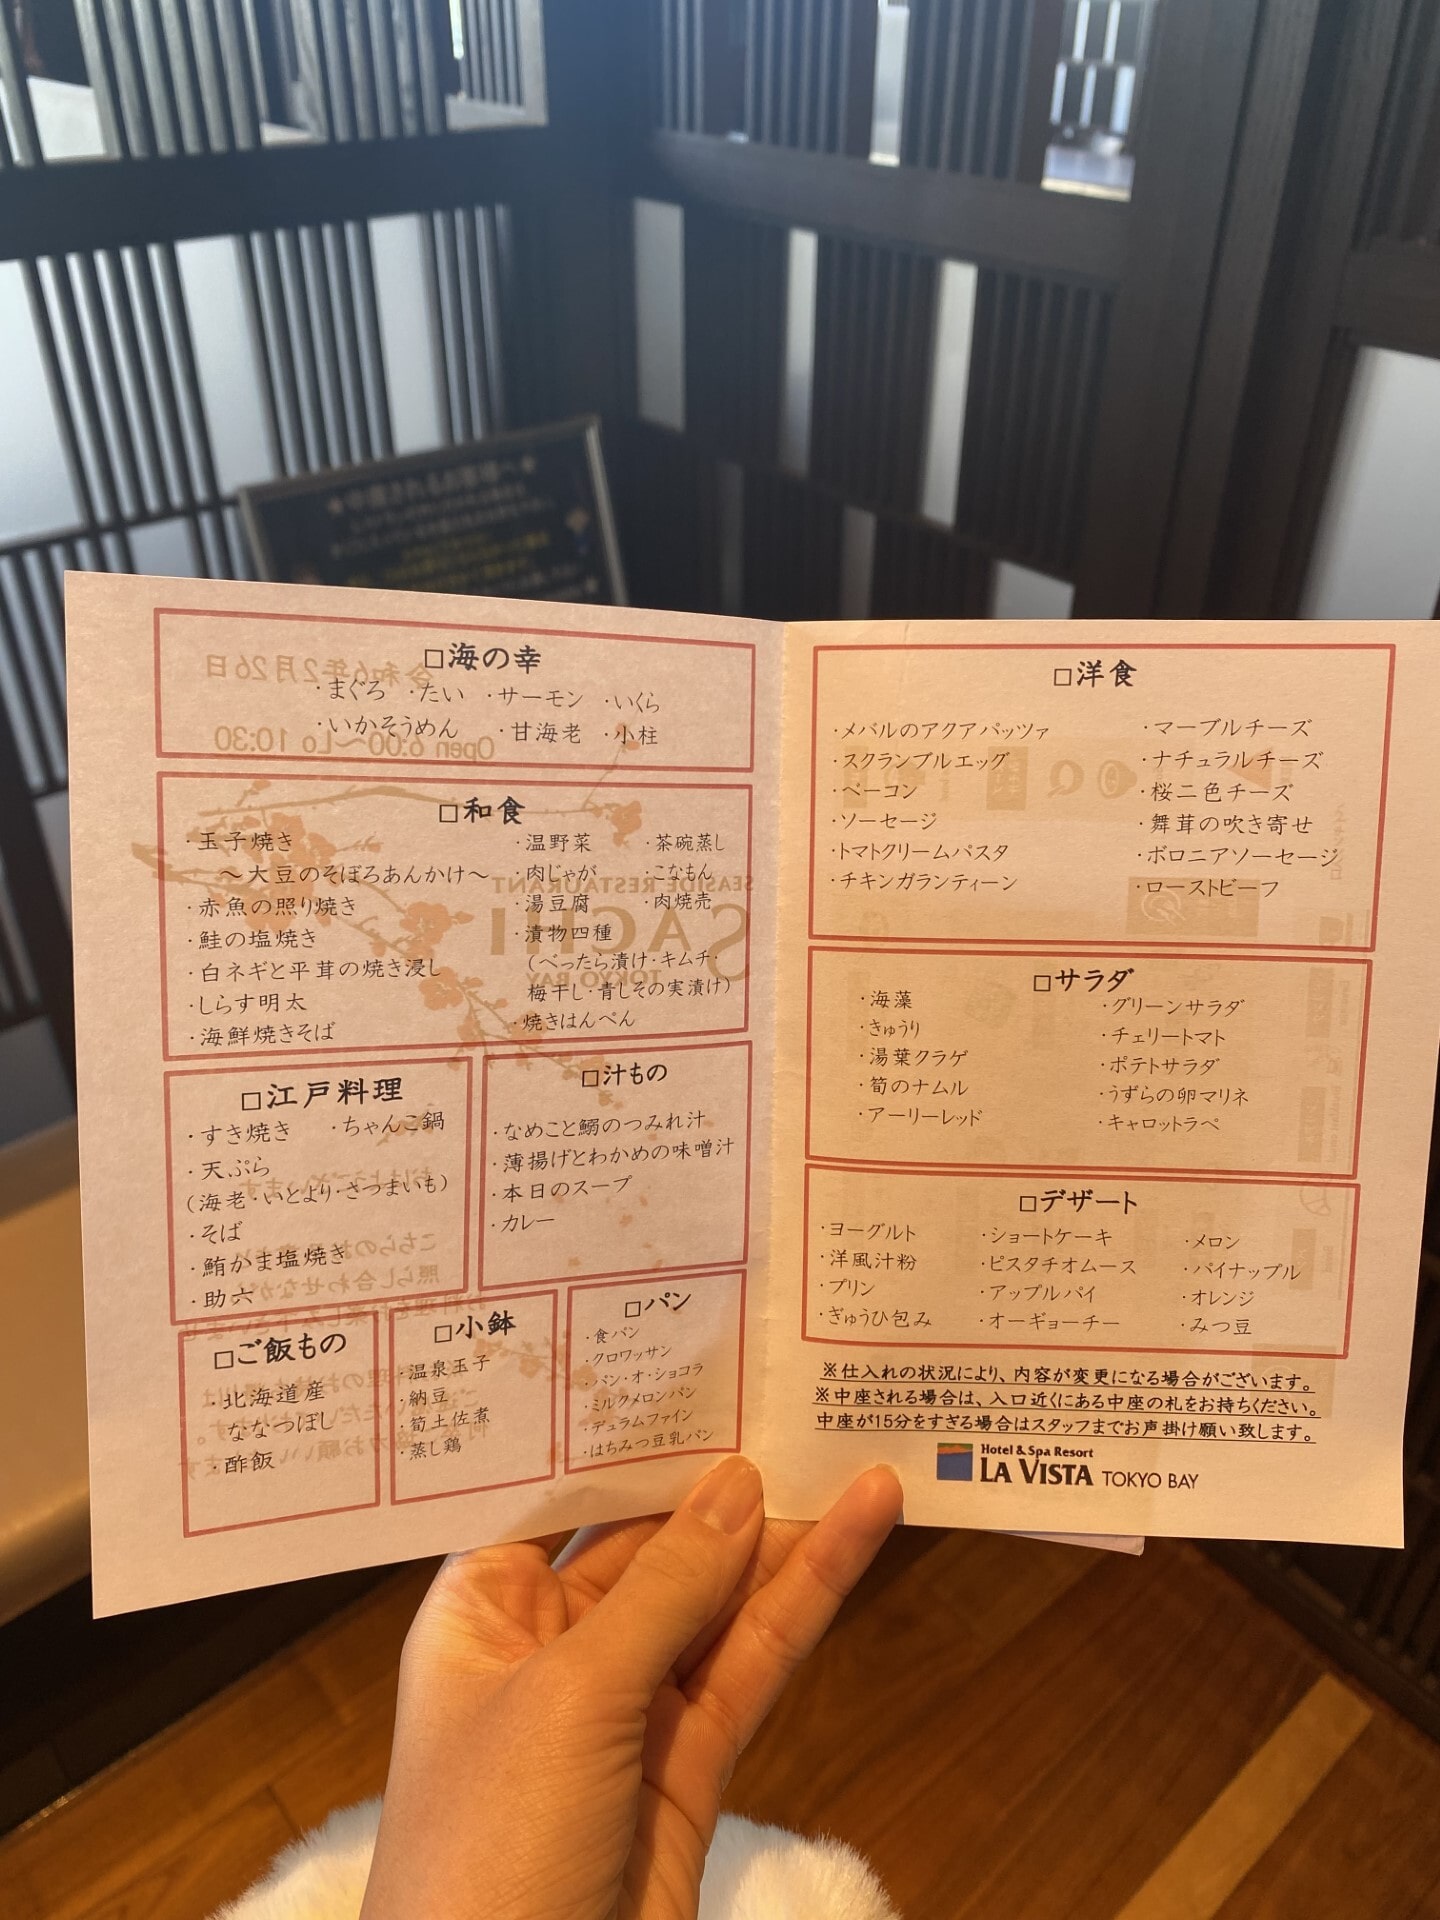 ★中座されるお客様へ★
□海の幸
・まぐろ ・たい ・サーモン ・いくら
・いかそうめん ・甘海老 ・小柱
□和食
・玉子焼き
～大豆のそぼろあんかけ～
・赤魚の照り焼き
・鮭の塩焼き
・白ネギと平茸の焼き浸し
・しらす明太
・海鮮焼きそば
・温野菜 ・茶碗蒸し
・肉じゃが ・こなもん
・湯豆腐 ・肉焼売
・漬物四種
(べったら漬け・キムチ・
梅干し・青しその実漬け)
・焼きはんぺん
□江戸料理
・すき焼き ・ちゃんこ鍋
・天ぷら
(海老・いとより・さつまいも)
・そば
・鮪かま塩焼き
・助六
□汁もの
・なめこと鰯のつみれ汁
・薄揚げとわかめの味噌汁
・本日のスープ
・カレー
□ご飯もの
・北海道産
ななつぼし
・酢飯
□小鉢
・温泉玉子
・納豆
・筍土佐煮
・蒸し鶏
□パン
・食パン
・クロワッサン
・パン・オ・ショコラ
・ミルクメロンパン
・デュラムファイン
・はちみつ豆乳パン
□洋食
・メバルのアクアパッツァ
・スクランブルエッグ
・ベーコン
・ソーセージ
・トマトクリームパスタ
・チキンガランティーン
・マーブルチーズ
・ナチュラルチーズ
・桜二色チーズ
・舞茸の吹き寄せ
・ボロニアソーセージ
・ローストビーフ
□サラダ
・海藻
・きゅうり
・湯葉クラゲ
・筍のナムル
・アーリーレッド
・グリーンサラダ
・チェリートマト
・ポテトサラダ
・うずらの卵マリネ
・キャロットラペ
□デザート
・ヨーグルト
・洋風汁粉
・プリン
・ぎゅうひ包み
・ショートケーキ
・ピスタチオムース
・アップルパイ
・オーギョーチー
・メロン
・パイナップル
・オレンジ
・みつ豆
※仕入れの状況により、内容が変更になる場合がございます。
※中座される場合は、入口近くにある中座の札をお持ちください。
中座が15分をすぎる場合はスタッフまでお声掛け願い致します。
Hotel & Spa Resort
LA VISTA TOKYO BAY